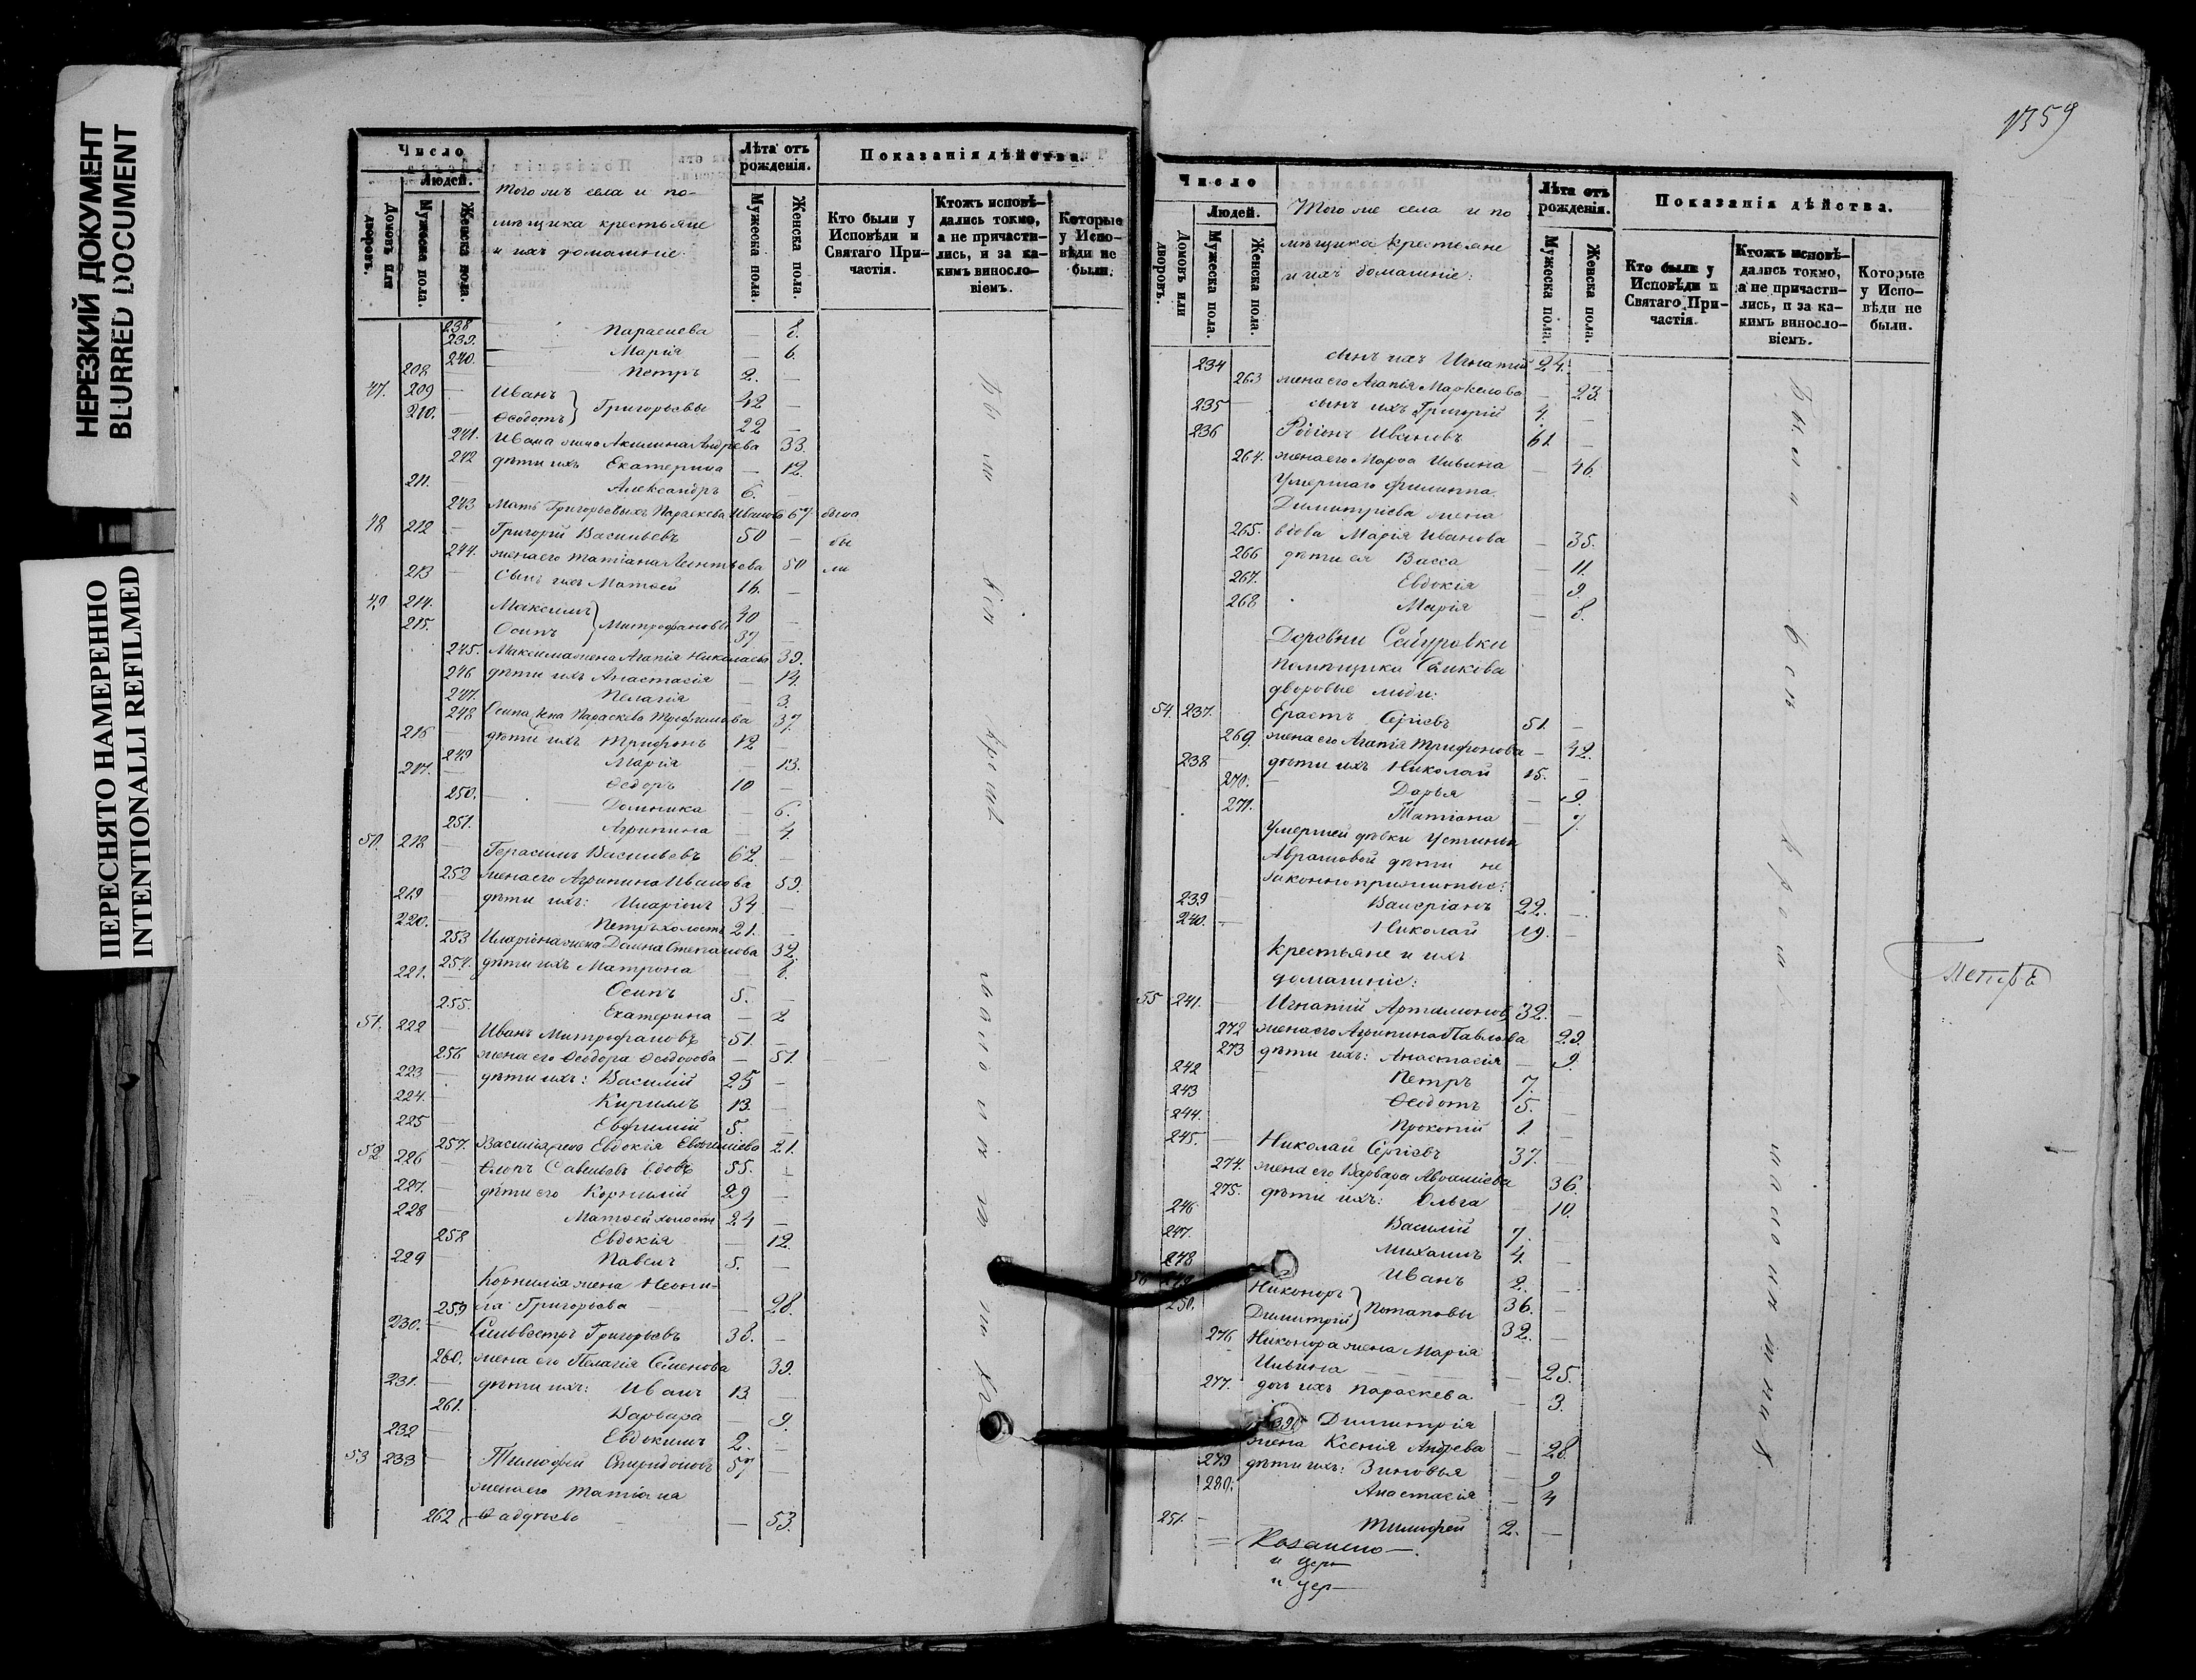 НЕРЕЗКИЙ ДОКУМЕНТ
BLURRED DOCUMENT
ПЕРЕСНЯТО НАМЕРЕННО
INTENTIONALLI REFILMED
Число
Людей.
Домовъ или дворовъ.
Мужеска пола.
Женска пола.
Того жъ села и по-
мѣщика крестьяне
и ихъ домашніе
Лѣта отъ рожденія.
Мужеска пола.
Женска пола.
Показанія дѣйства.
Кто были у Исповѣди и Святаго Причастія.
Ктожъ исповѣ-
дались токмо,
а не причасти-
лись, и за ка-
кимъ виносло-
віемъ.
Которые
у Испо-
вѣди не
были.
238 Параскева — 8.
239. Марія — 6.
240.
208 Петръ 2. —
47. 209 Иванъ } Григорьевы 42 —
210. Ѳеодотъ 22 —
241. Ивана жена Акилина Андреева 33.
242 дѣти ихъ Екатерина — 12.
211. Александръ 6. —
243 Мать Григорьевыхъ Параскева Иванова 67 была
48 212 Григорій Васильевъ 50 — бы
244. жена его Татіана Леонтьева 50 ли
213 Сынъ ихъ Матѳей 16. —
49 214. Максимъ } Митрофановы 40 —
215. Осипъ 37 —
245. Максима жена Агапія Николаева 39.
246 дѣти ихъ Анастасія — 14.
247. Пелагія — 3.
248 Осипа жена Параскева Трофимова 37.
216 дѣти ихъ Трифонъ 12 —
249 Марія — 13.
217. Ѳедоръ 10 —
250. Домника — 6.
251. Агрипина — 4.
50. 218 Герасимъ Васильевъ 62. —
252 жена его Агрипина Иванова 59.
219 дѣти ихъ: Иларіонъ 34 —
220. Петръ холостъ 21. —
253 Иларіона жена Домна Степанова 32.
254. дѣти ихъ Матрона — 8.
221. Осипъ 5. —
255. Екатерина — 2
51. 222 Иванъ Митрофановъ 51. —
256 жена его Ѳеодора Ѳеодорова — 51.
223 дѣти ихъ: Василій 25 —
224. Кирилъ 13. —
225 Евфимій 5. —
257. Василія жена Евдокія 21.
52 226 Савельевъ вдовъ 55. —
227. дѣти его Корнилій 29 —
228 Матѳей холостъ 24 —
258 Евдокія — 12.
229 Павелъ 5. —
Корнилія жена Неони-
259 ла Григорьева — 28.
230. Сильвестръ Григорьевъ 38. —
260. жена его Пелагія Семенова 39.
231. дѣти ихъ: Иванъ 13. —
261. Варвара — 9.
232 Евдокимъ 2. —
53 233 Тимофей Спиридоновъ 57 —
жена его Татіана
262 Ѳадѣева — 53.
1359
Число
Людей.
Домовъ или дворовъ.
Мужеска пола.
Женска пола.
Того же села и по
мѣщика крестьяне
и ихъ домашніе:
Лѣта отъ рожденія.
Мужеска пола.
Женска пола.
Показанія дѣйства.
Кто были у Исповѣди и Святаго Причастія.
Ктожъ исповѣ-
дались токмо,
а не причасти-
лись, и за ка-
кимъ виносло-
віемъ.
Которые
у Испо-
вѣди не
были.
234 сынъ ихъ Игнатій 24. —
263 жена его Агапія Маркелова — 23.
235 сынъ ихъ Григорій 4. —
236 Родіонъ Ивановъ 61 —
264. жена его Марѳа Ильина — 46.
Умершаго Филиппа
Димитріева жена
265. вдова Марія Иванова — 35.
266 дѣти ея Васса — 11.
267. Евдокія — 9.
268 Марія — 8.
Деревни
помѣщика
дворовые люди:
54. 237. Ерастъ Сергіевъ 51. —
269. жена его Агапія Трифонова — 42.
238 дѣти ихъ Николай 15. —
270. Дарья — 9.
271. Татіана — 7.
Умершей дѣвки Устиньи
дѣти не
законноприжитые:
239 Валеріанъ 22. —
240. Николай 19. —
Крестьяне и ихъ
домашніе:
55 241. Игнатій Артамоновъ 32. —
272 жена его Агрипина Павлова 29.
273 дѣти ихъ: Анастасія — 9.
242 Петръ 7. —
243 Ѳеодотъ 5. —
244. Прокопій 1. —
245. Николай Сергіевъ 37. —
274. жена его Варвара 36.
275. дѣти ихъ: Ольга — 10.
246 Василій 7. —
247. Михаилъ 4. —
248 Иванъ 2. —
56 249 Никоноръ } Потаповы 36. —
250. Димитрій 32. —
276 Никонора жена Марія
Ильина — 25.
277. дочь ихъ Параскева — 3.
Димитрія
жена Ксенія Андреева — 28.
279 дѣти ихъ: Зиновья — 9
280. Анастасія — 4
251. Тимофей 2. —